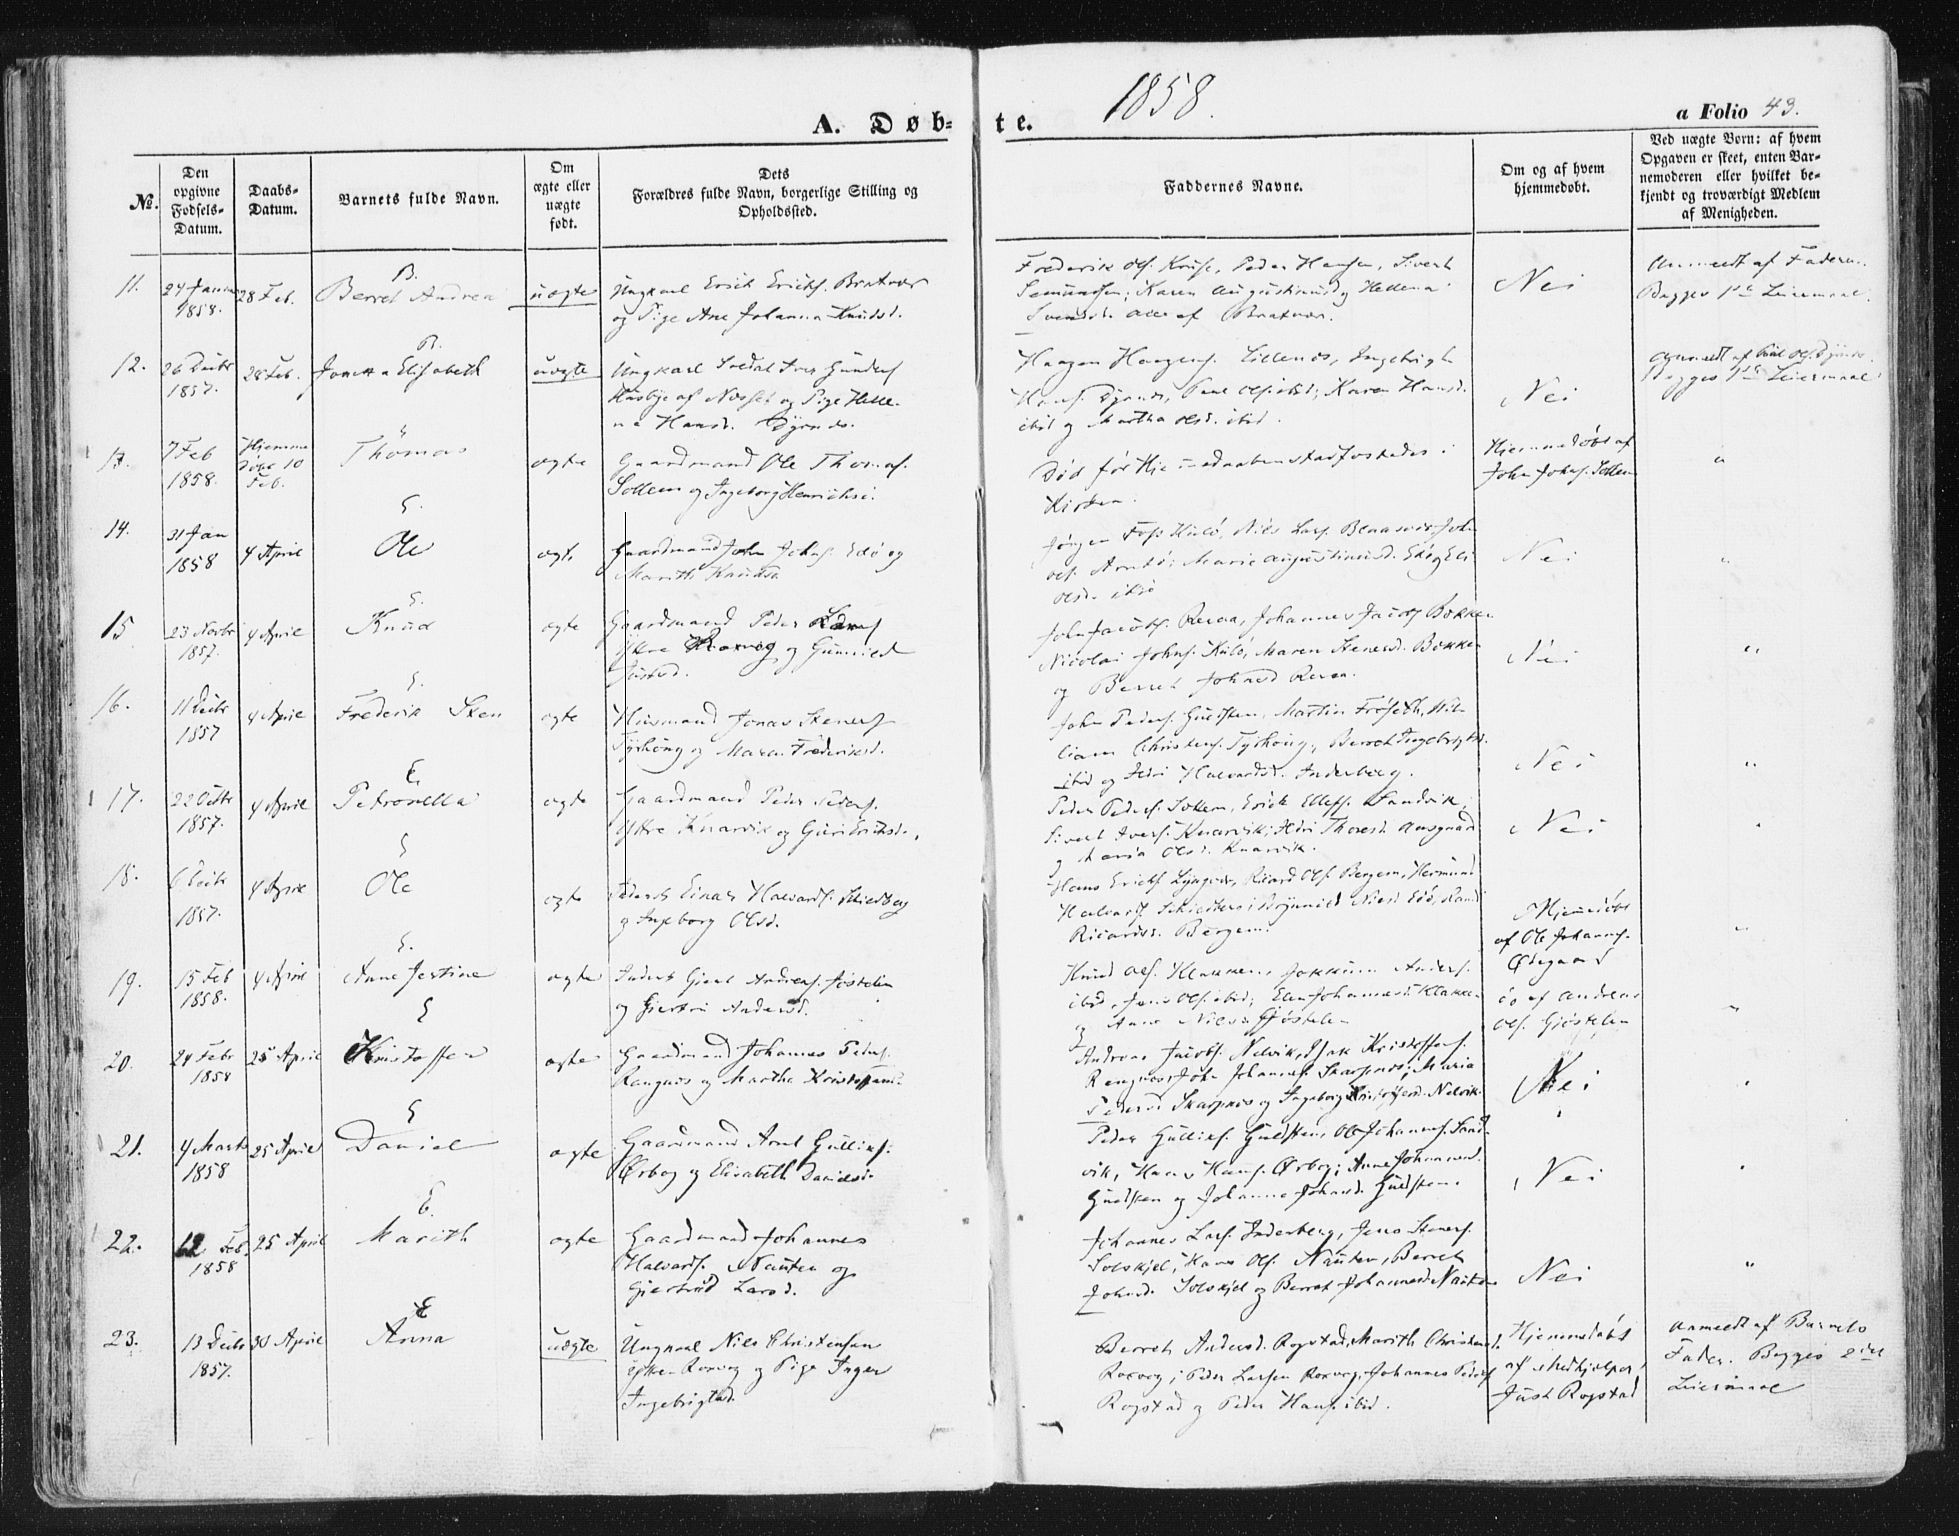 1858.
A. Døb-
te.
a Folio 43.
№.
Den
opgivne
Fødsels-
Datum.
Daabs-
Datum.
Barnets fulde Navn.
Om
ægte eller
uægte
født.
Dets
Forældres fulde Navn, borgerlige Stilling og
Opholdssted.
Faddernes Navne.
Om og af hvem
hjemmedøbt.
Ved uægte Børn: af hvem
Opgaven er skeet, enten Bar-
nemoderen eller hvilket be-
kjendt og troværdigt Medlem
af Menigheden.
11.
1858.
28 Feb.
B.
Berret Andrea
uægte
Ungkarl Erich Erichs. Bratvær
og Pige Ane Johanna Knudsd.
Frederik Ols. Kruse, Peder Hansen, Sivert
Karen Augustinusd og Hellena
Svendsd. Alle af Bratvær.
Nei
Anmeldt af Faderen.
Begges 1ste Leiermaal.
12.
26 Decbr
1857.
28 Feb.
B.
Elisabeth
uægte
Ungkarl Soldat Iver Gunders
af Næsset og Pige Helle-
na Hansd.
Haagen Haagens. Lillenes, Ingebrigt
Hans. Paul Ols. ibid; Karen Hansd.
ibid og Martha Olsd. ibid.
Nei
Begges 1ste Leiermaal.
13.
7 Feb
1858.
Hjemme
døbt 10
Feb.
Thomas
ægte
Gaardmand Ole Thomas.
Sollem og Ingeborg Henrichsd.
Død før Hjemmedaaben stadfæstedes i
Kirken.
Hjemmedøbt af
John Johns. Sollem
"
14.
31 Jan
1858
4 April
E.
Ole
ægte
Gaardmand John Johns. Edø og
Marith Knudsd
Jørgen Foss Kulø, Niels Lars.
Ols. Marie Augustinusd. Edø og Eli
Olsd. ibid
Nei
"
15
23 Novbr
1857.
4 April
E.
Knud
ægte
Gaardmand Peder Lars
Ytre og Gunnild
Justsd.
John Jacobs. Johannes Jacobs Bækken
Nicolai Johns. Kulø, Maren Stenersd. Bækken
og Berret Johnsd
Nei
"
16.
11 Decbr
1857
4 April
E.
Frederik Sten
ægte
Husmand Jonas Steners
Tyrhoug og Maren Frederiksd.
John Peders. Guldsten, Martin Frøseth, Wil-
liam Christens. Tyrhoug, Berret Ingebrigtsd.
ibid og Halvardsd. Inderberg.
Nei
"
17.
22 Octbr
1857.
4 April
E.
Petronella
ægte
Gaardmand Peder Peders.
Ytre Knarvik og Guri Eriksd.
Peder Peders. Sollem, Erick Ellefs. Sandvik,
Sivert Ivers. Knarvik;
og Maria Olsd. Knarvik.
Nei
18.
6 Decbr
1857.
4 April
E
Ole
ægte
Inderst Einar Halvards.
og Ingeborg Olsd.
Hans Erichs. Lyngvær, Ricard Ols. Bergem, Hermund
Halvards. Niels
Ricardsd. Bergem.
Hjemmedøbt
af Ole Johanns.
Ødegaard
"
19.
15 Feb
1858.
4 April
E.
Anne Jertine
ægte
Inderst Gjert Andreas. Gjøstelen
og Giertru Andersd.
Knud Ols. Klakken, Anders.
ibid, Jens Ols. ibid; Elen Johannesd. Klakken
og Anne Nilsd Gjøstelen
do af Andreas
Ols. Gjøstelen
"
20.
24 Febr
1858
25 April
E
Kristoffer
ægte
Gaardmand Johannes Peders.
Rangnæs og Martha Kristoffersd.
Andreas Jacobs. Nelvik, Isak Kristoffers.
Rangnæs, John Johannes. Skarpnæs; Maria
Pedersd Skarpnæs og Ingeborg Kristoffersd. Nelvik.
Nei
21.
4 Marts
1858
25 April
E
Daniel
ægte
Gaardmand Arnt Gulliks.
Ørbog og Elisabeth Danielsd.
Peder Gulliks. Guldsten, Ole Johannes. Sand-
vik, Hans Hans. Ørbog; Anne Johannesd.
Guldsten og Johanna Johansd. Guldsten.
Nei
22.
12 Feb.
1858
25 April
E.
Marith
ægte
Gaardmand Johannes
Halvards. Nausten og
Giertrud Larsd.
Johannes Lars. Inderberg, Jens Steners.
Solskjel, Hans Ols. Nausten, Berret
Johnsd. Solskjel og Berret Johannesd. Nausten
Nei
"
23.
13 Decbr
1857.
30 April
E
Anna
uægte
Ungkarl Nils Christensen
Ytre Roxvog og Pige Inger
Ingebrigtsd.
Berret Andersd. Rogstad, Marith Christensd.
Roxvog; Peder Larsen Roxvog, Johannes Peders
Rogstad og Peder Hans. ibid.
Hjemmedøbt
af Medhjelper
Just Rogstad
Anmeldt af Barnets
Fader. Begges 2det
Leiermaal